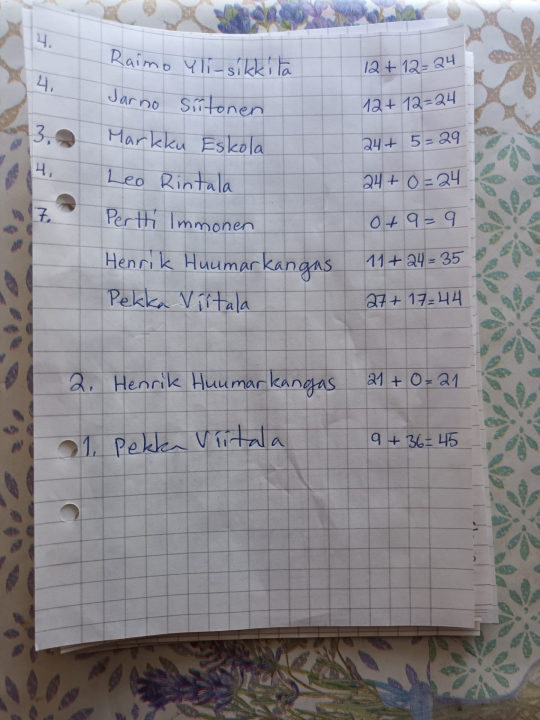 4. Raimo Yli-sikkilä 12 + 12 = 24
4. Jarno Siitonen 12 + 12 = 24
3. Markku Eskola 24 + 5 = 29
4. Leo Rintala 24 + 0 = 24
7. Pertti Immonen 0 + 9 = 9
Henrik Huumarkangas 11 + 24 = 35
Pekka Viitala 27 + 17 = 44
2. Henrik Huumarkangas 21 + 0 = 21
1. Pekka Viitala 9 + 36 = 45